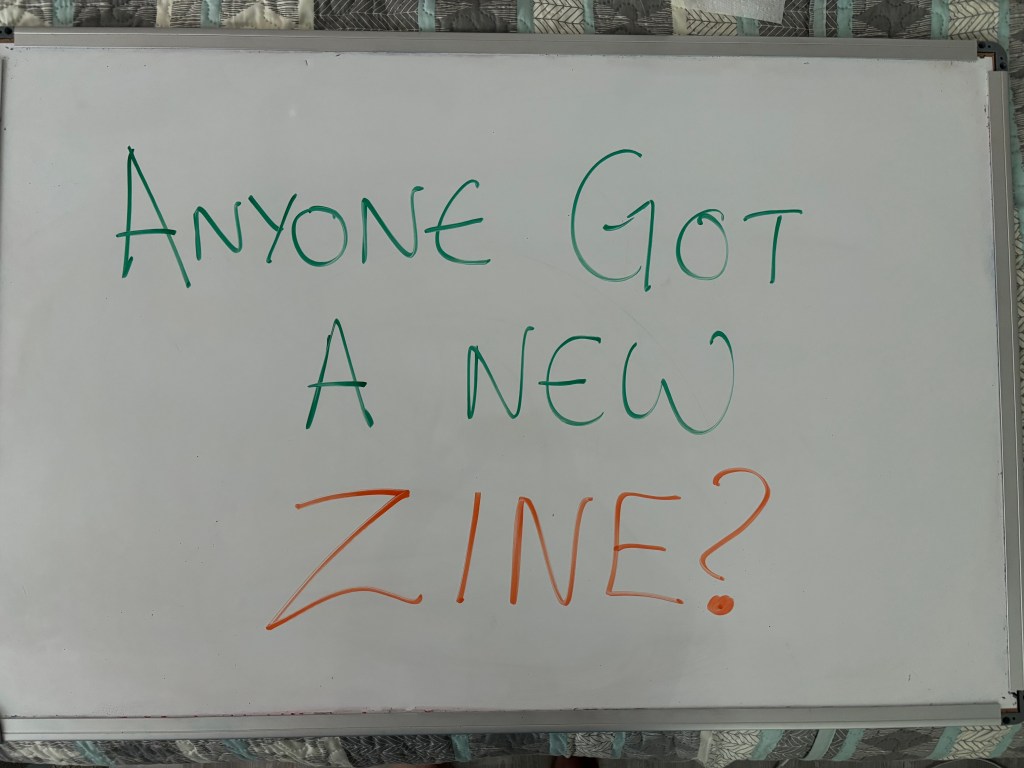 ANYONE GOT
A NEW
ZINE?